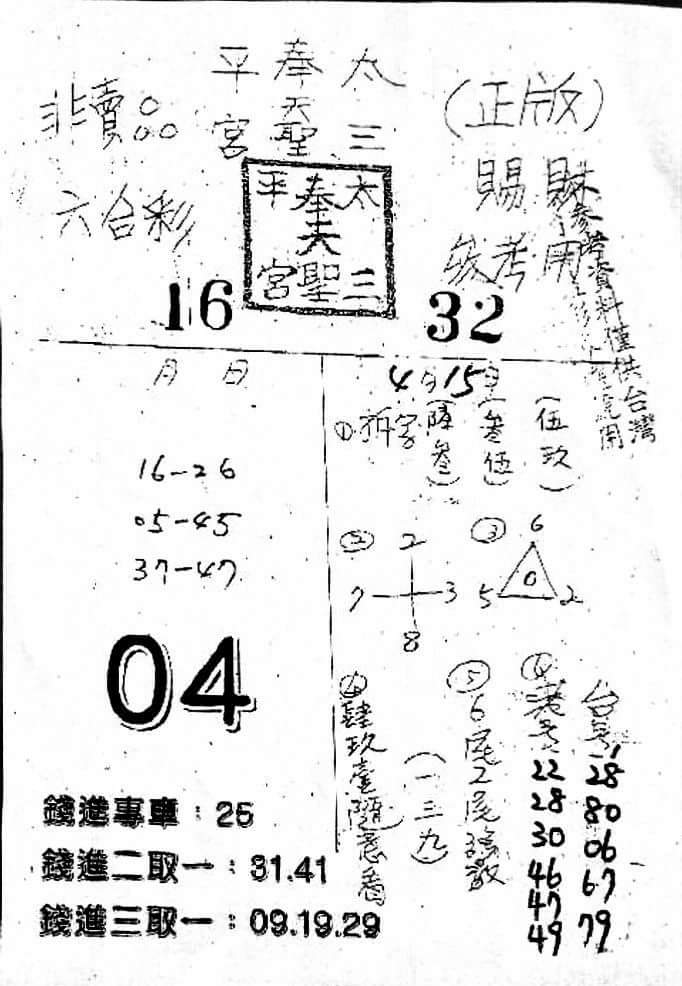 太三 奉天聖 平宮
(正版)
非賣品
六合彩
賜財
參考用
太三
奉天聖
平宮
參考資料僅供台灣
16
32
月 日
16-26
05-45
37-47
04
錢進專車:25
錢進二取一:31.41
錢進三取一:09.19.29
4月15日
①拆字(陸叁)(叁伍)(伍玖)
② 2 7 3 8
③ 6 5 0 2
④ 肆玖臺隨意看
(一三九)
⑤ 6尾2尾
台号
28
80
06
67
79
22
28
30
46
47
49